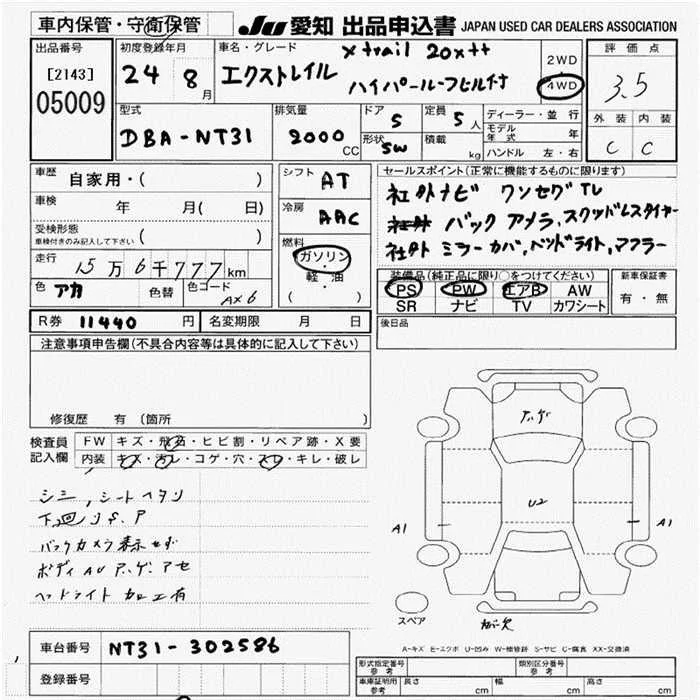 車内保管・守衛保管
JU 愛知 出品申込書 JAPAN USED CAR DEALERS ASSOCIATION
出品番号
[2143]
05009
初度登録年月
24 8月
車名・グレード
xtrail 20xtt
エクストレイル ハイパールーフレール付
2WD
4WD
評価点
3.5
外装 内装
C C
型式
DBA-NT31
排気量
2000 CC
ドア
5
形状
SW
定員
5人
積載
kg
ディーラー・並行
モデル年式 年
ハンドル 左・右
車歴 自家用・( )
車検 年 月( 日)
受検形態
車検付きのみ記入して下さい ( )
走行 15万6千777km
色 アカ 色替 色コード AX6
シフト AT
冷房 AAC
燃料
ガソリン
・
軽・油
( )
セールスポイント(正常に機能するものに限ります)
社外ナビ ワンセグTV
バックカメラ、スタッドレスタイヤ
社外 ミラーカバー、ヘッドライト、マフラー
装備品(純正品に限り○をつけてください)
PS PW エアB AW
SR ナビ TV カワシート
新車保証書
有・無
R券 11440 円 名変期限 月 日
後日品
注意事項申告欄(不具合内容等は具体的に記入して下さい)
修復歴 有 (箇所 )
検査員記入欄
FW キズ・飛石・ヒビ割・リペア跡・X要
内装 キズ・汚レ・コゲ・穴・スレ・キレ・破レ
シミ、シートヘタリ
下回りS.P
バックカメラ表示せず
ボディAU アンゲ アセ
ヘッドライト加工有
アンゲ
U2
A1
A1
スペア
A-キズ E-エクボ U-凹み W-補修跡 S-サビ C-腐食 XX-交換済
車台番号 NT31-302586
登録番号
形式指定番号 参考
類別区分番号 参考
車庫証明用 参考 長さ cm 幅 cm 高さ cm